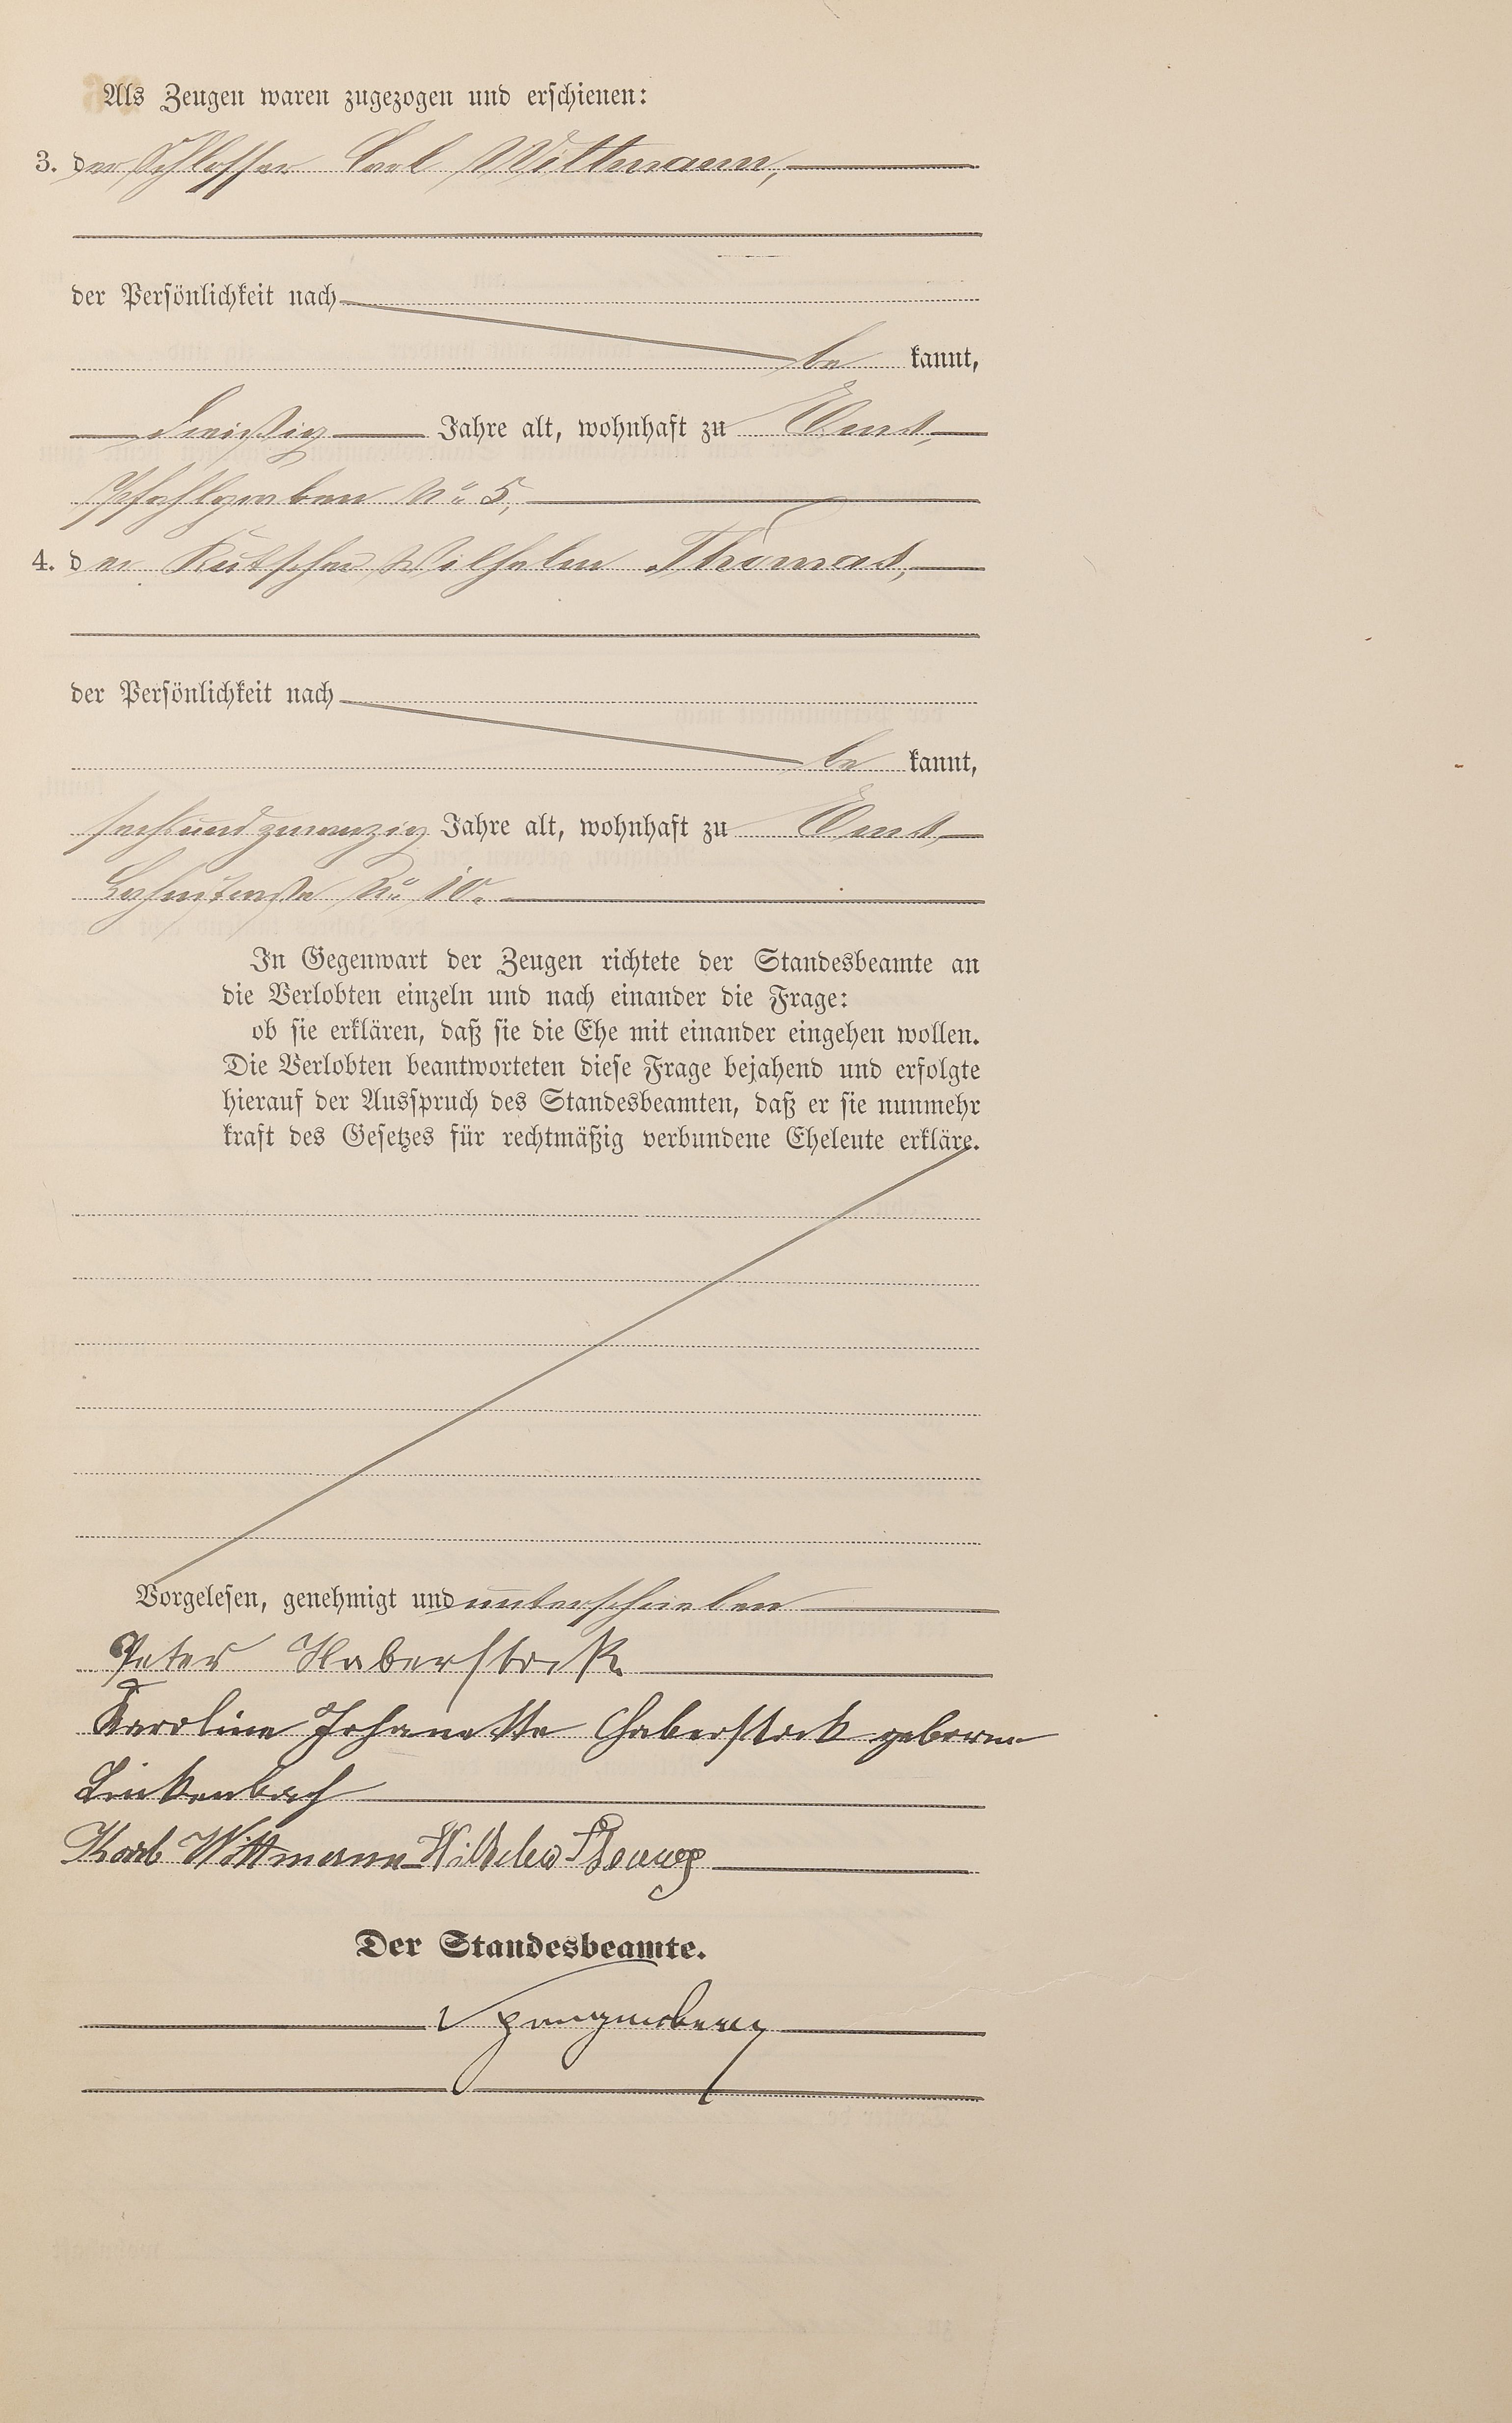 Als Zeugen waren zugezogen und erschienen:
3. der Schlosser Carl Wittmann,
der Persönlichkeit nach
be kannt,
dreißig Jahre alt, wohnhaft zu Ems,
Pfahlgraben No 5,
4. der Kutscher Wilhelm Thomas,
der Persönlichkeit nach
be kannt,
sechsundzwanzig Jahre alt, wohnhaft zu Ems
No 10.
In Gegenwart der Zeugen richtete der Standesbeamte an
die Verlobten einzeln und nach einander die Frage:
ob sie erklären, daß sie die Ehe mit einander eingehen wollen.
Die Verlobten beantworteten diese Frage bejahend und erfolgte
hierauf der Ausspruch des Standesbeamten, daß er sie nunmehr
kraft des Gesetzes für rechtmäßig verbundene Eheleute erkläre.
Vorgelesen, genehmigt und unterschrieben
Peter Haberstock
Karoline Johanette Haberstock geborene
Linkenbach
Karl Wittmann Wilhelm Thomas
Der Standesbeamte.